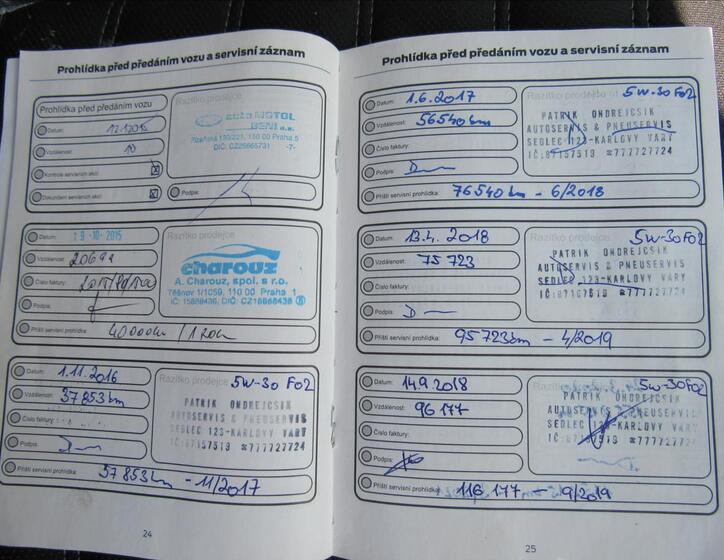 Prohlídka před předáním vozu a servisní záznam
Prohlídka před předáním vozu
Razítko prodejce
Datum:
Vzdálenost: 10
Kontrola servisních akcí
Dokončení servisních akcí
Podpis:
auto MOTOL
BENI a.s.
Plzeňská 130/221, 150 00 Praha 5
-7-
Datum: 19-10-2015
Vzdálenost:
Číslo faktury:
Podpis:
Příští servisní prohlídka: 40000km / 1 rok
Razítko prodejce
charouz
A. Charouz, spol. s r.o.
Těšnov 1/1059, 110 00 Praha 1
Datum: 1.11.2016
Vzdálenost: 37853km
Číslo faktury:
Podpis:
Příští servisní prohlídka: 57853km - 11/2017
Razítko prodejce 5W-30 F02
PATRIK ONDREJCSIK
AUTOSERVIS & PNEUSERVIS
SEDLEC 123-KARLOVY VARY
IČ:87157519 ☎777727724
24
Prohlídka před předáním vozu a servisní záznam
Datum: 1.6.2017
Vzdálenost: 56540km
Číslo faktury:
Podpis:
Příští servisní prohlídka: 76540km - 6/2018
Razítko prodejce 5W-30 F02
PATRIK ONDREJCSIK
AUTOSERVIS & PNEUSERVIS
SEDLEC 123-KARLOVY VARY
IČ:87157519 ☎777727724
Datum: 13.4. 2018
Vzdálenost: 75 723
Číslo faktury:
Podpis:
Příští servisní prohlídka: 95723km - 4/2019
Razítko prodejce 5W-30 F02
PATRIK ONDREJCSIK
AUTOSERVIS & PNEUSERVIS
SEDLEC 123-KARLOVY VARY
IČ:87157519 ☎777727724
Datum: 14.9.2018
Vzdálenost: 96 177
Číslo faktury:
Podpis:
Příští servisní prohlídka: 116 177 - 9/2019
5W-30 F02
PATRIK ONDREJCSIK
AUTOSERVIS & PNEUSERVIS
SEDLEC 123-KARLOVY VARY
IČ:87157519 ☎777727724
25